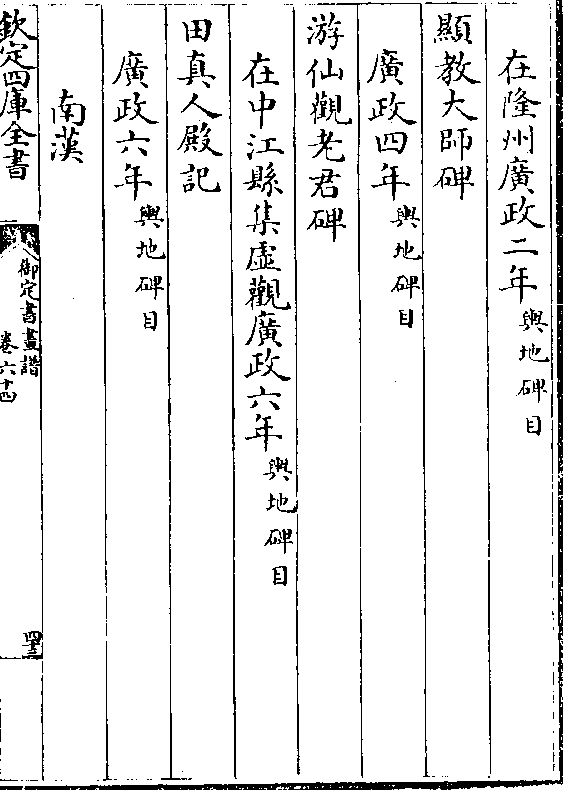 在隆州廣政二年輿地碑目
顯教大師碑
廣政四年輿地碑目
游仙觀老君碑
在中江縣集虛觀廣政六年輿地碑目
田真人殿記
廣政六年輿地碑目
南漢
欽定四庫全書
御定書畫譜
卷六十四
四三